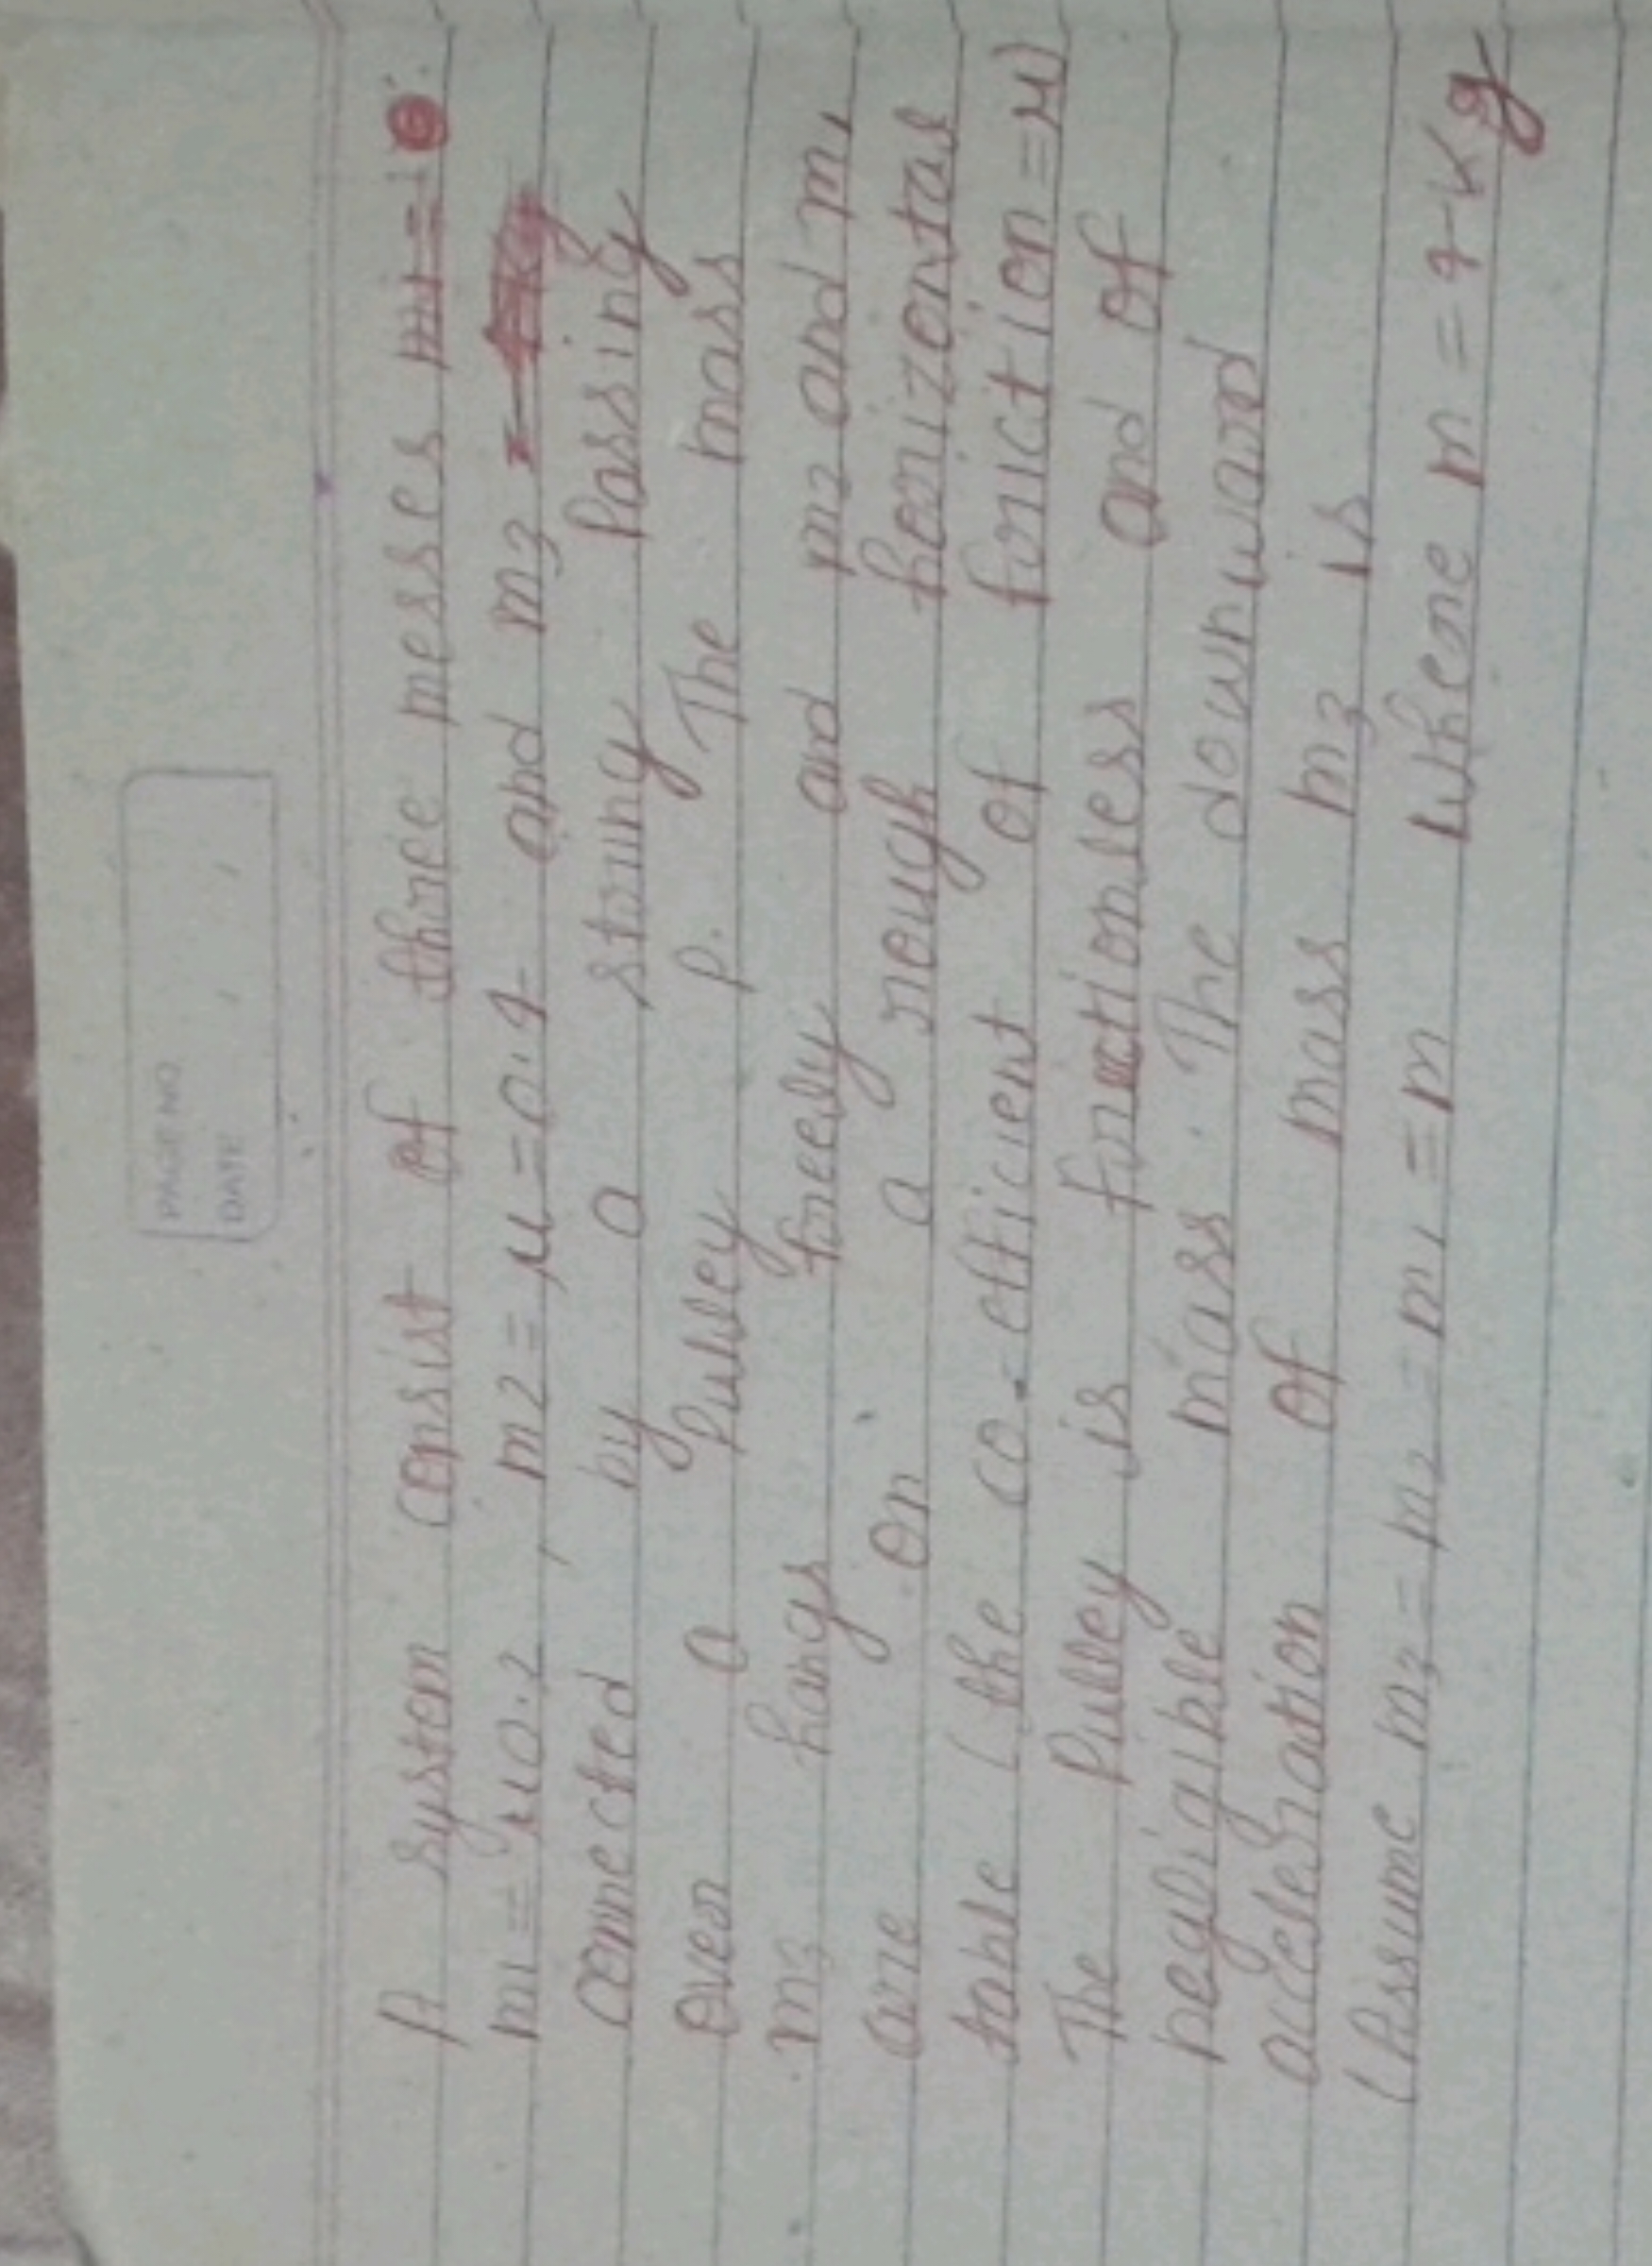 PAGE NO
DATE
A system consist of three messes
m1 = μ0.2, m2 = μ = 0.4 and m3
connected by a string Passing
over a Pulley P. The mass
m3 hangs freely and m2 and m1
are on a rough horizontal
table (the co-efficient of friction = μ)
The Pulley is frictionless and of
negligible mass. The downward
acceleration of mass m3 is
(Assume m3 = m2 = m1 = m where m = 4 kg